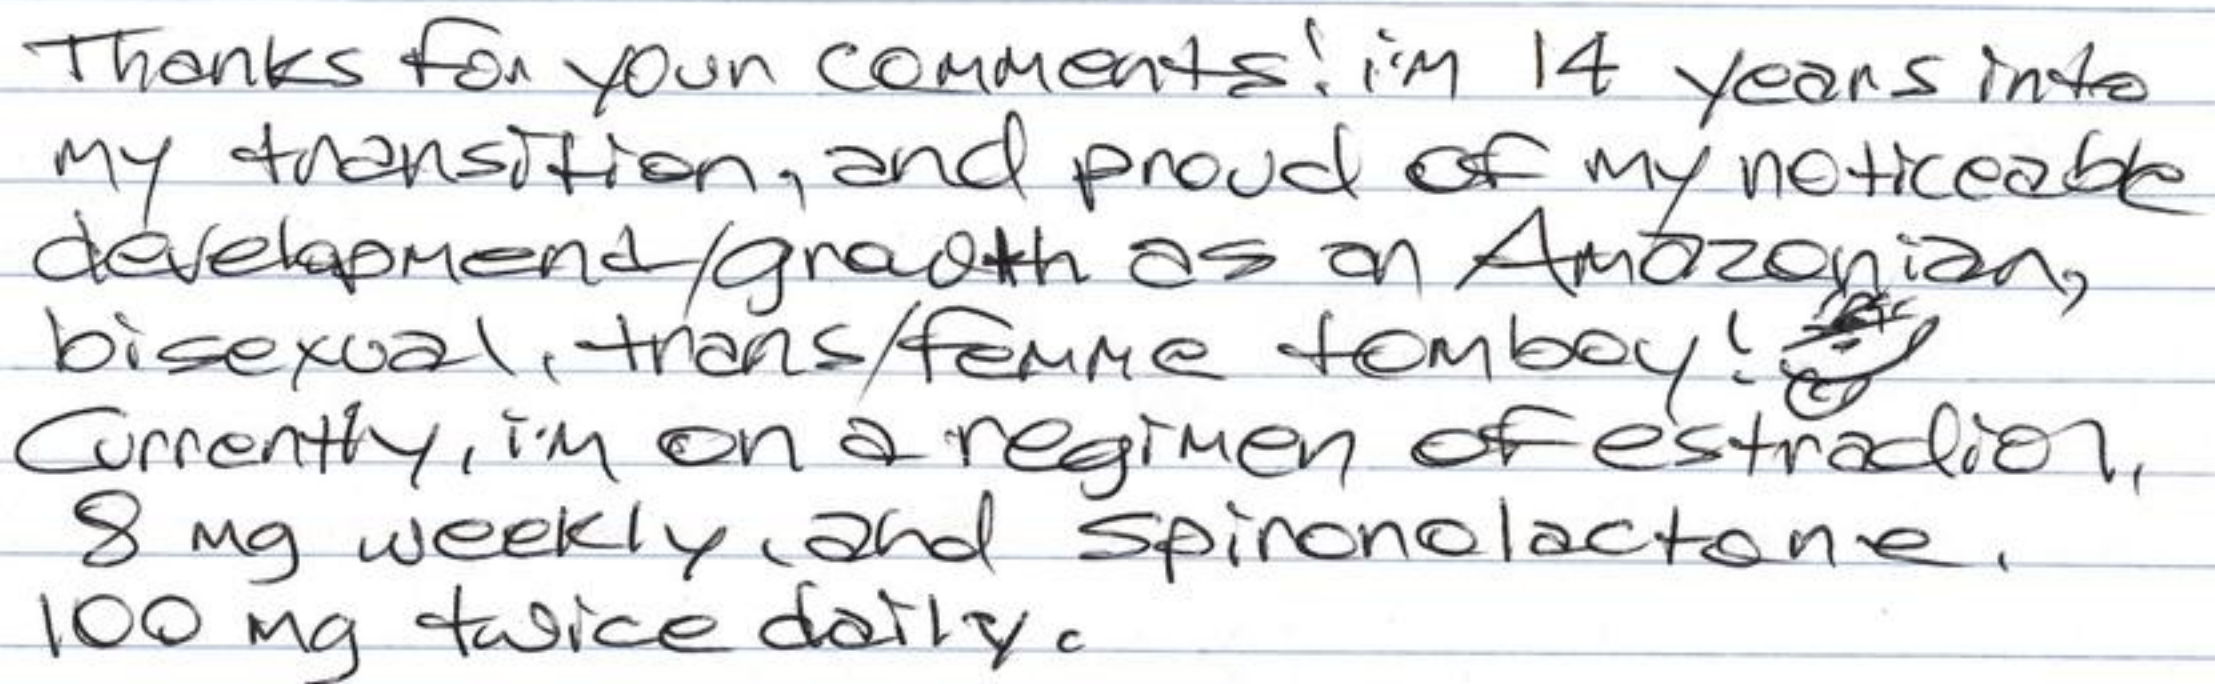 Thanks for your comments! i'm 14 years into
my transition, and proud of my noticeable
development/growth as an Amazonian,
bisexual, trans/femme tomboy!
Currently, i'm on a regimen of estradiol,
8 mg weekly, and spironolactone,
100 mg twice daily.